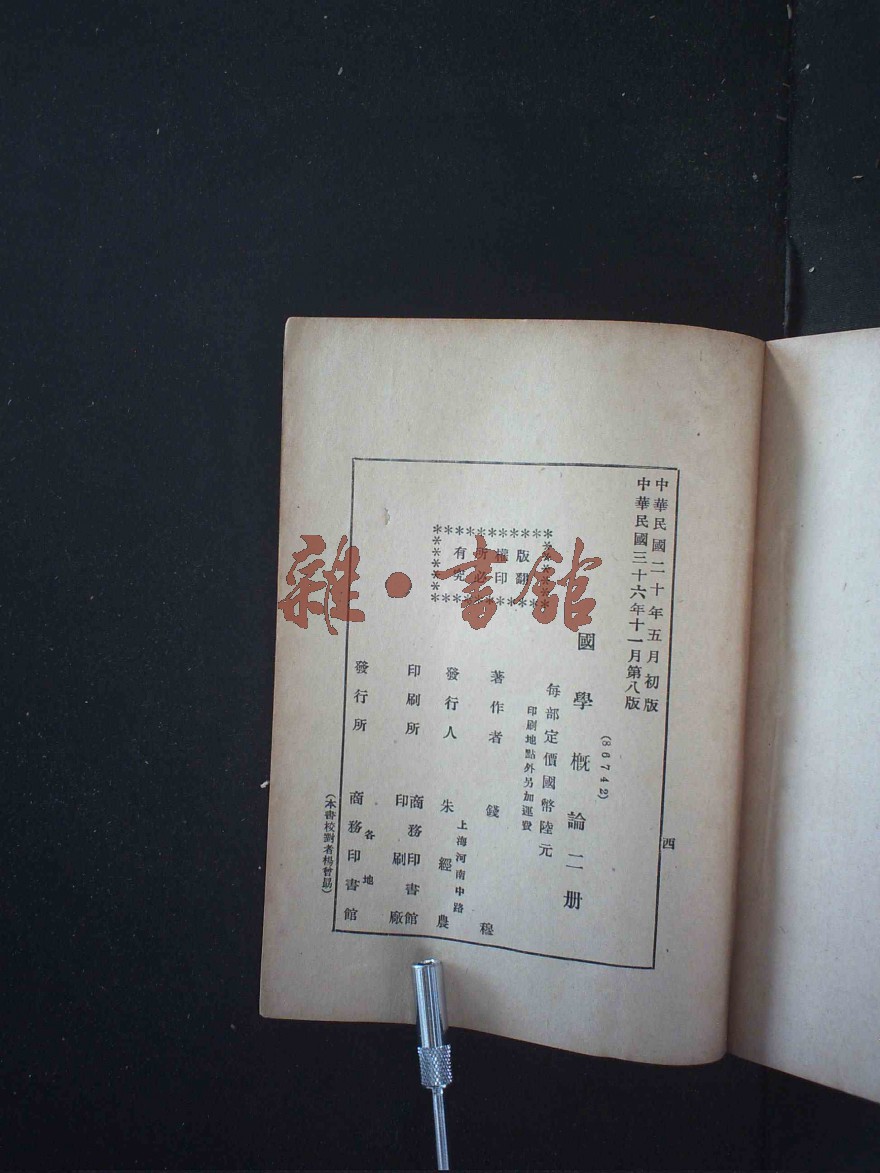 中華民國二十年五月初版
中華民國三十六年十一月第八版
西
(86742)
國學概論二册
每部定價國幣陸元
印刷地點外另加運費
版權所有
翻印必究
著作者 錢穆
發行人 朱經農
上海河南中路
印刷所 商務印書館
印刷廠
發行所 各地
商務印書館
(本書校對者楊
雜·書館